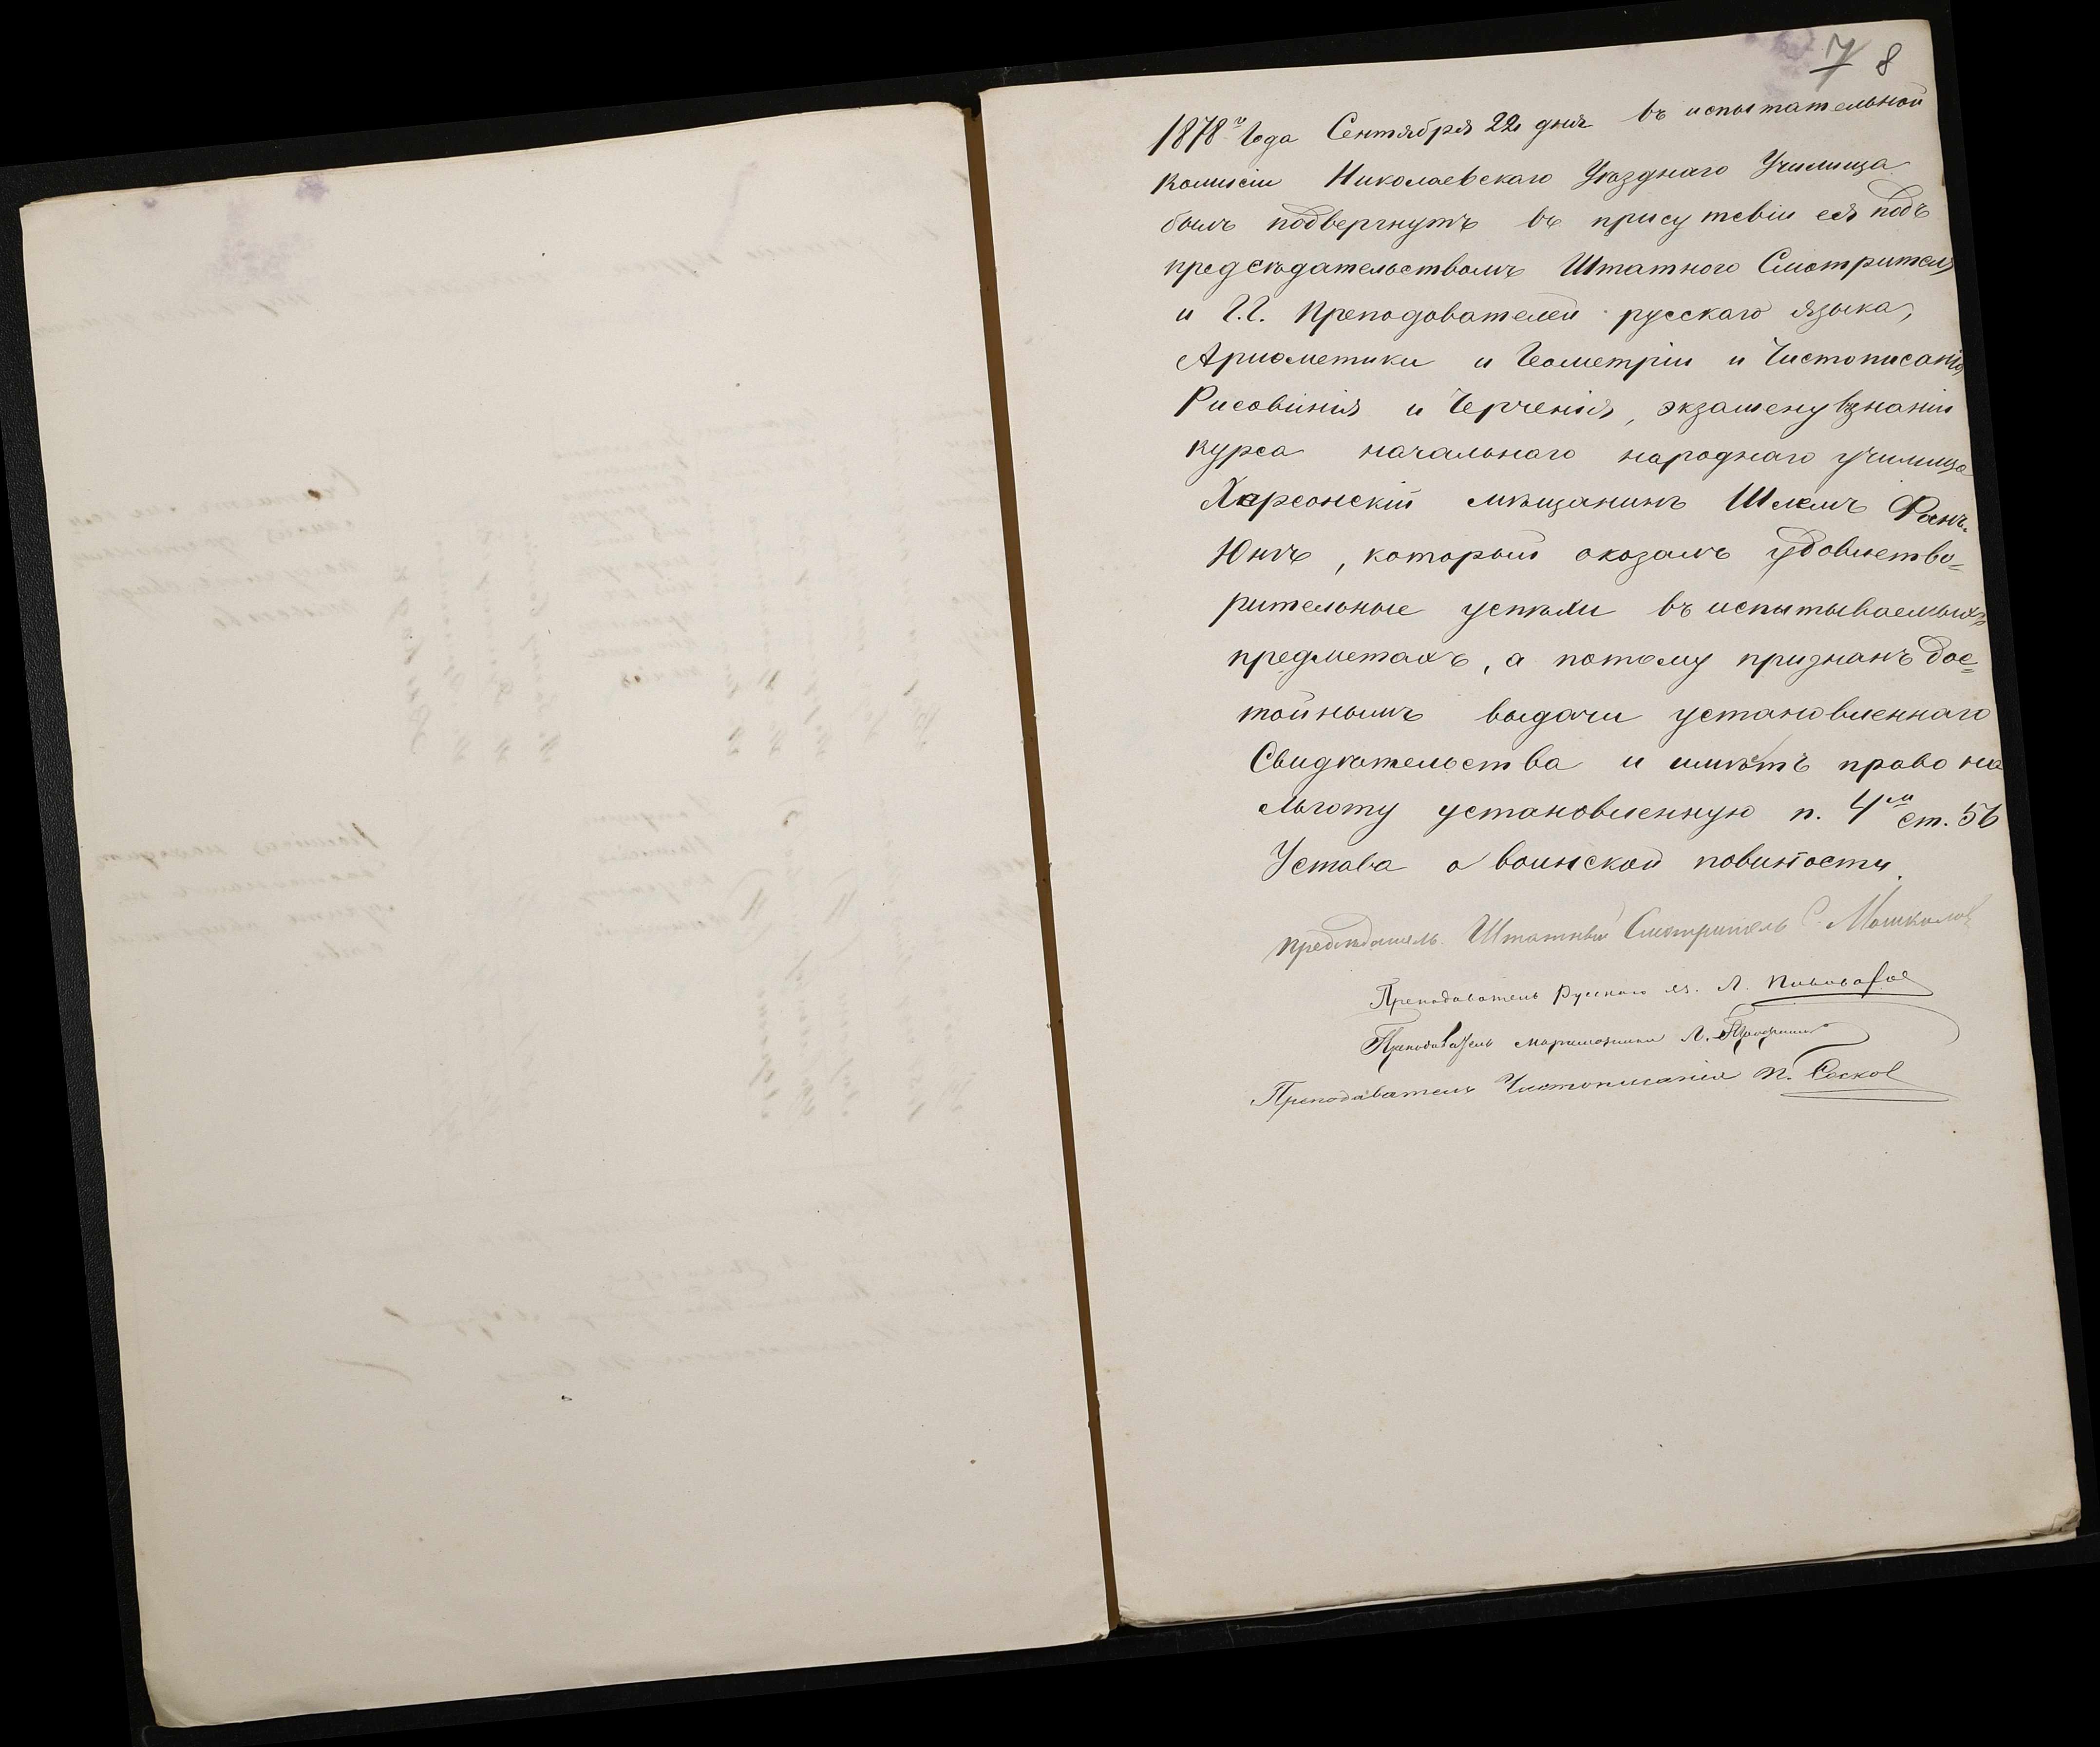 7 8
1878го Года Сентября 22 дня въ испытательной
Комисіи Николаевскаго Уѣзднаго Училища
былъ подвергнутъ въ присутсвіи ея подъ
предсѣдательствомъ Штатного Смотрителя
и Г.Г. Преподователей русскаго языка,
Ариѳметики и Геометріи и Чистописанія
Рисованія и Черченія, экзамену въ знаніи
курса начальнаго народнаго училища
Херсонскій мѣщанинъ Шлемъ Фанъ-
Юнгъ, который оказалъ удовлетво=
рительные успѣхи въ испытываемыхъ
предметахъ, а потому признанъ дос=
тойнымъ выдачи установленнаго
Свидѣтельства и имѣетъ право на
льготу установленную п. 4м ст. 56
Устава о воинской повиности.
Предсѣдатель Штатный Смотритель С.
Преподаватель Русскаго яз. Л. Пивоваров
Преподаватель Л.
Преподаватель Чистописанія П. Сосков